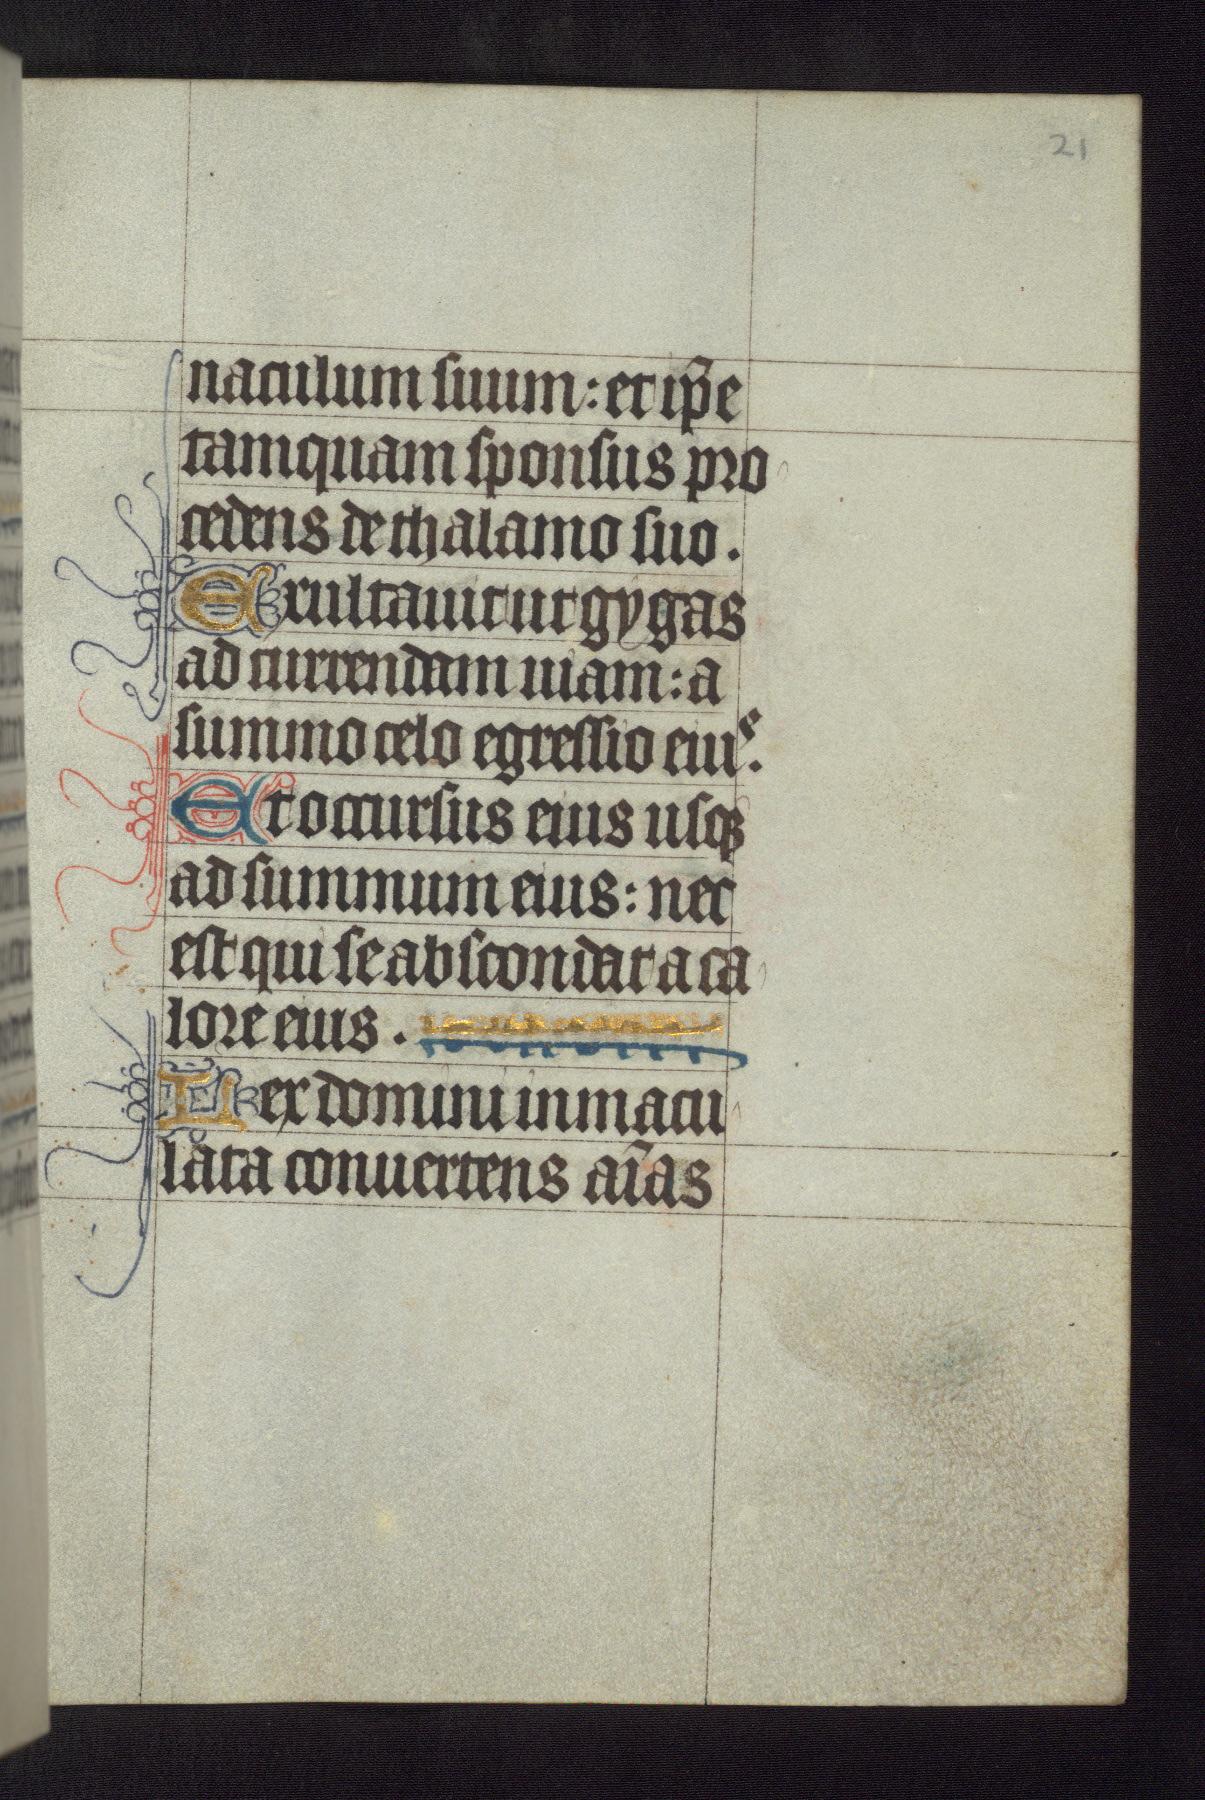 21
naculum suum: et ip̃e
tamquam sponsus pro
cedens de thalamo suo.
Exultauit ut gygas
ad currendam uiam: a
summo celo egressio eius.
Et occursus eius usqꝫ
ad summum eius: nec
est qui se abscondat a ca
lore eius.
Lex domini inmacu
lata conuertens aĩas